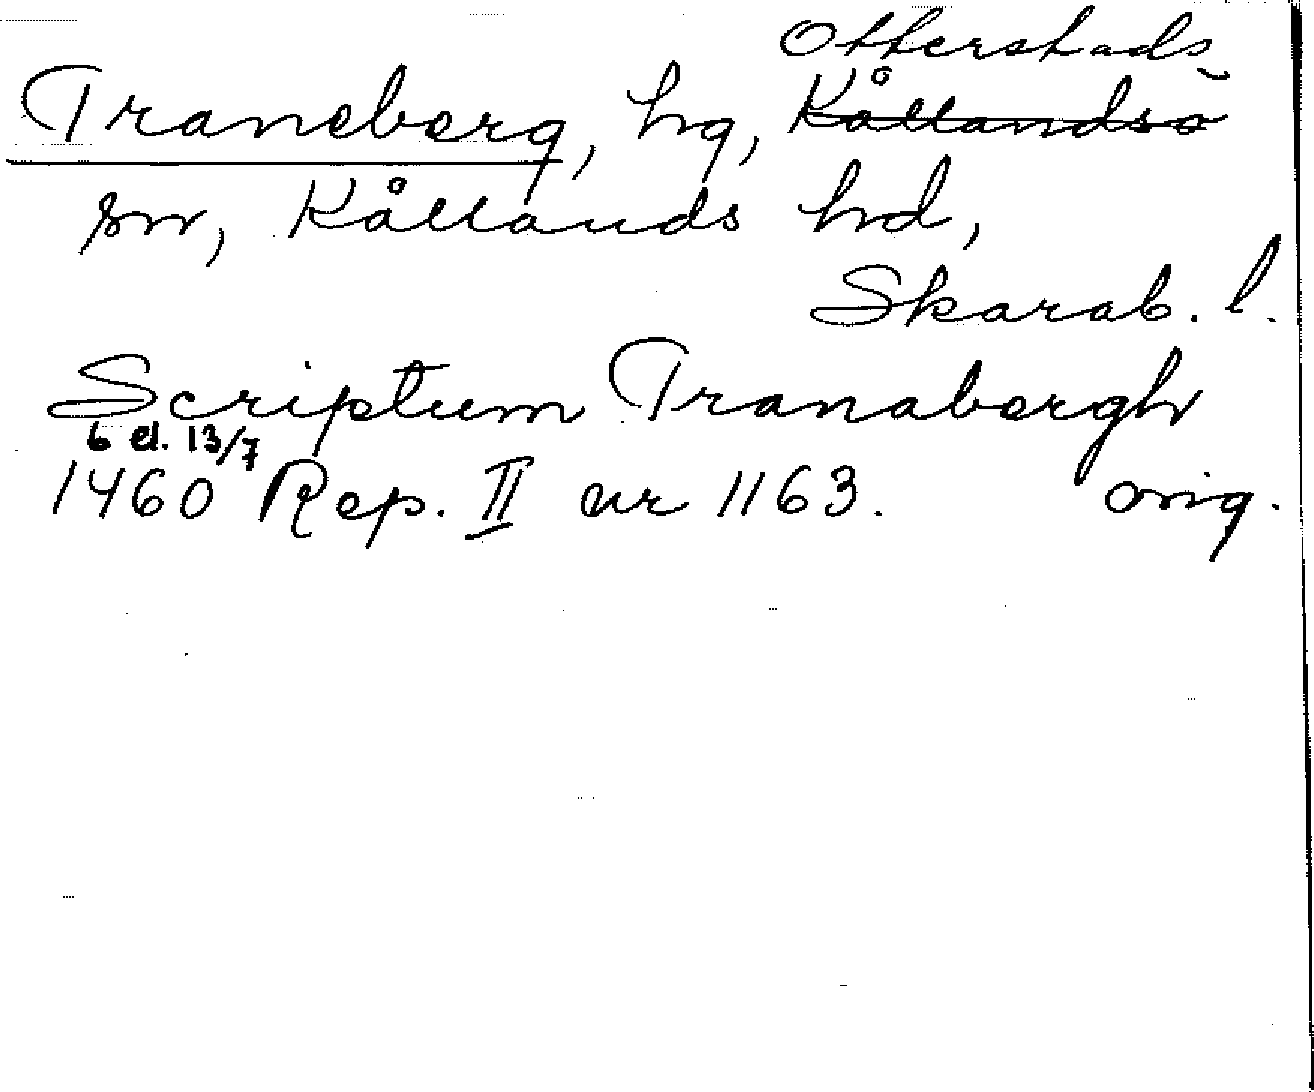 Otterstads
Traneberg, hg, Kållandsö
sn, Kållands hd,
Skarab. l.
Scriptum Tranabergh
6 el. 13/7
1460 Rep. II nr 1163. orig.